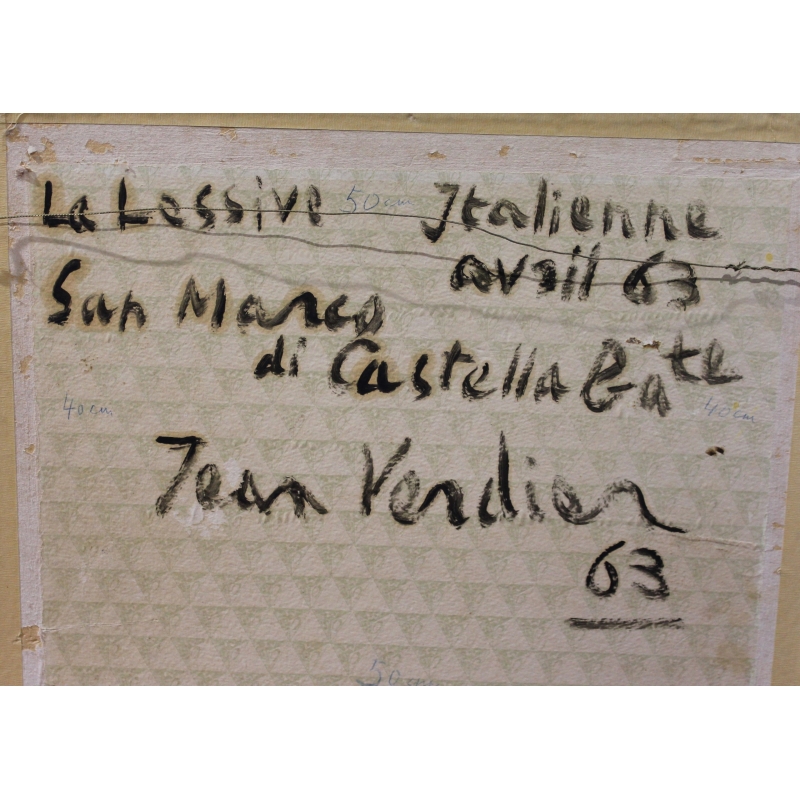 La Lessive 50cm Italienne
avril 63
San Marco
di Castella Bate
40cm 40cm
Jean Verdier
63
50cm